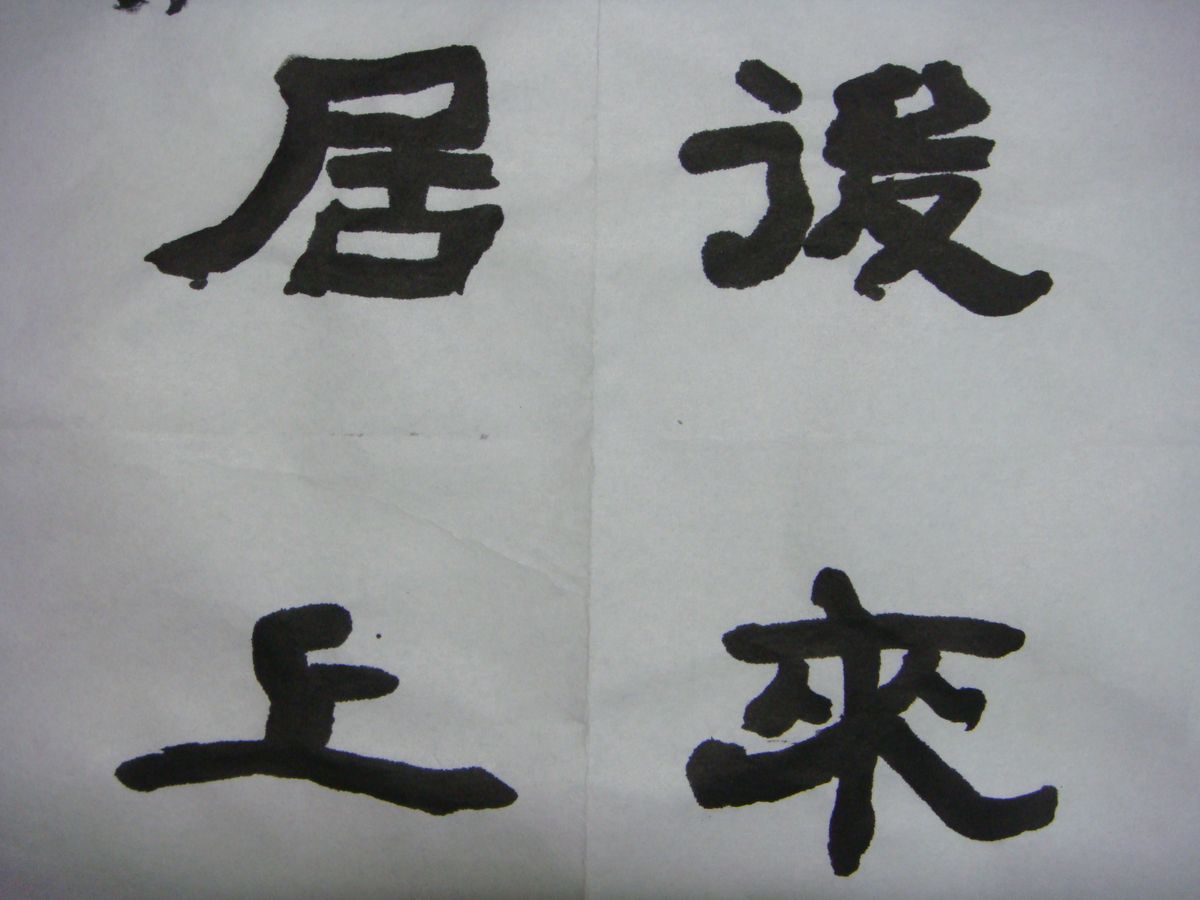 後來
居上